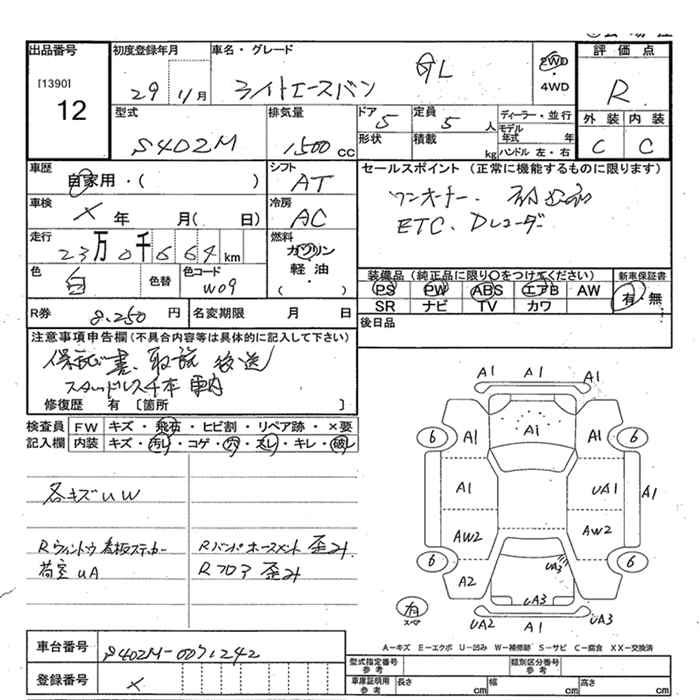 出品番号
[1390]
12
初度登録年月
29 11月
車名・グレード
ライトエースバン GL
2WD
・
4WD
評価点
R
外装 内装
C C
型式
S402M
排気量
1500 CC
ドア
5
形状
定員
5 人
積載 kg
ディーラー・並行
モデル年式 年
ハンドル 左・右
車歴
自家用・( )
車検
× 年 月( 日)
走行
23万0千664km
色
白
色替
色コード
W09
シフト
AT
冷房
AC
燃料
ガソリン
軽油
( )
セールスポイント(正常に機能するものに限ります)
ワンオーナー.
ETC. Dレコーダー
装備品(純正品に限り○をつけてください)
PS PW ABS エアB AW
SR ナビ TV カワ
新車保証書
有・無
R券
8.250円
名変期限 月 日
後日品
注意事項申告欄(不具合内容等は具体的に記入して下さい)
保証書、取説 後送
スタッドレス4本 車内
修復歴 有 [箇所 ]
検査員
記入欄
FW キズ・飛石・ヒビ割・リペア跡・×要
内装 キズ・汚レ・コゲ・穴・スレ・キレ・破レ
各キズUW
Rウィンドウ看板ステッカー
荷室UA
Rバンパホースメント 歪ミ
Rフロア 歪ミ
A1
A1 A1
A1
6 6
A1 A1
A1 UA1 A1
AW2 AW2
UA3
6 6
A2
UA3
有
スペア
UA2 A1 UA3
A-キズ E-エクボ U-凹み W-補修跡 S-サビ C-腐食 XX-交換済
車台番号
S402M-0071242
登録番号
×
型式指定番号
参考
類別区分番号
参考
車庫証明用
参考
長さ cm 幅 cm 高さ cm